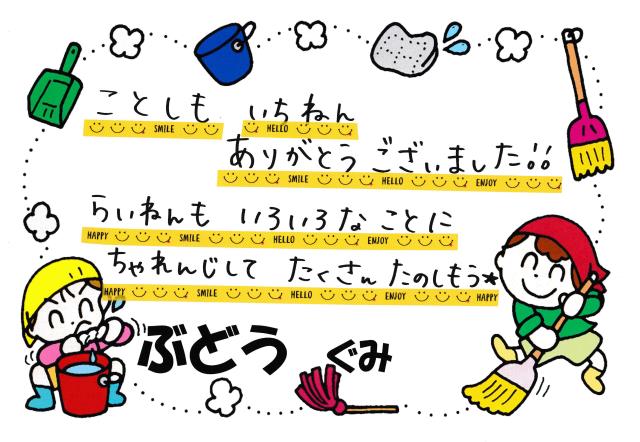 ことしも いちねん
SMILE HELLO
ありがとう ございました!!
SMILE HELLO ENJOY
らいねんも いろいろな ことに
HAPPY SMILE HELLO ENJOY
ちゃれんじして たくさん たのしもう★
HAPPY SMILE HELLO ENJOY HAPPY
ぶどう ぐみ